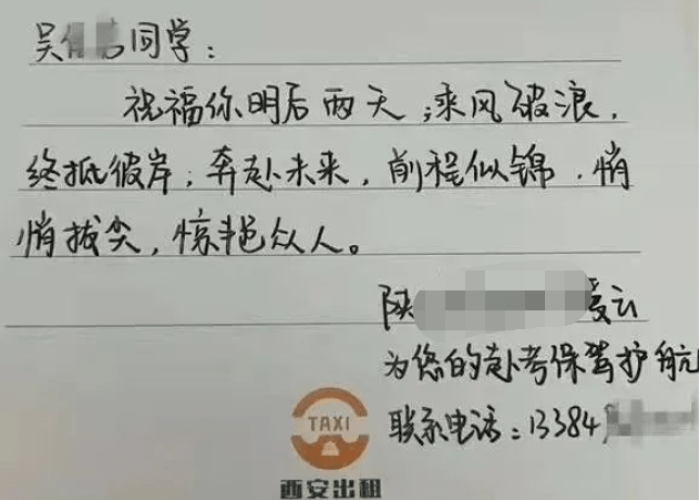 吴 同学：
祝福你明后两天，乘风破浪，
终抵彼岸；奔赴未来，前程似锦．悄
悄拔尖，惊艳众人。
陕 爱云
为您的赴考保驾护航
联系电话：13384
TAXI
西安出租